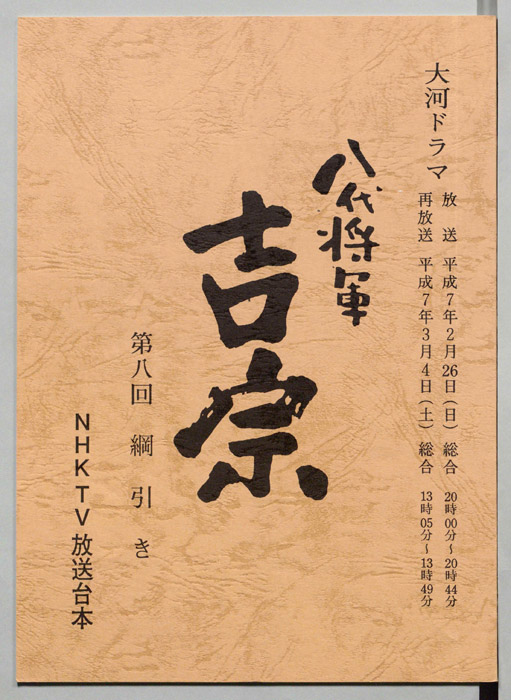 大河ドラマ
放送 平成7年2月26日(日) 総合 20時00分〜20時44分
再放送 平成7年3月4日(土) 総合 13時05分〜13時49分
八代将軍
吉宗
第八回 綱引き
NHKTV放送台本